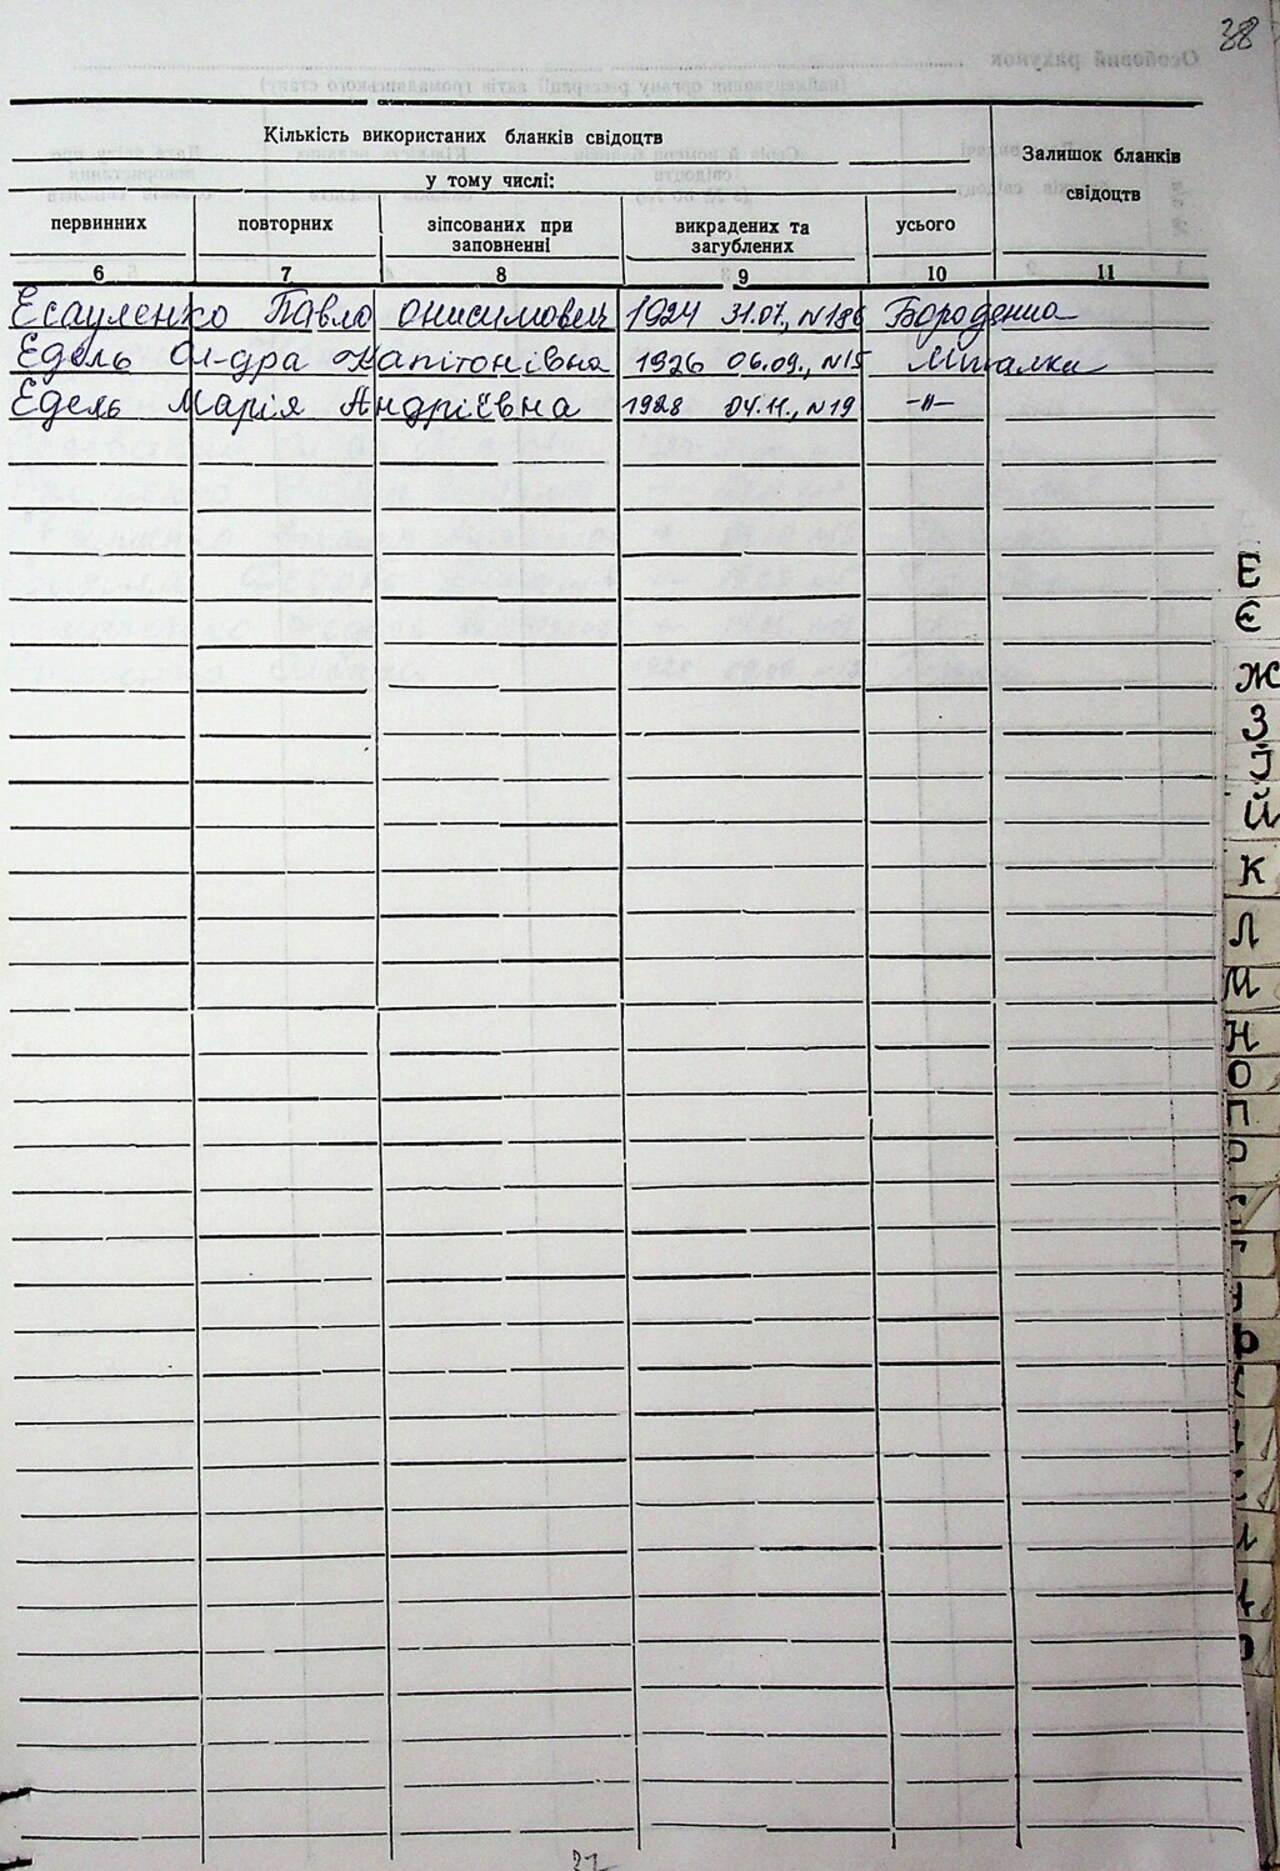 38
Кількість використаних бланків свідоцтв
Залишок бланків свідоцтв
у тому числі:
первинних повторних зіпсованих при заповненні викрадених та загублених усього
6 7 8 9 10 11
Есауленко Павло Онисимович 1924 31.07., N186
Едель Ол-дра Капітонівна 1926 06.09., N15
Едель Марія Андріївна 1928 04.11., N19 -"-
Е
Є
Ж
З
І
Й
К
Л
М
Н
О
П
Р